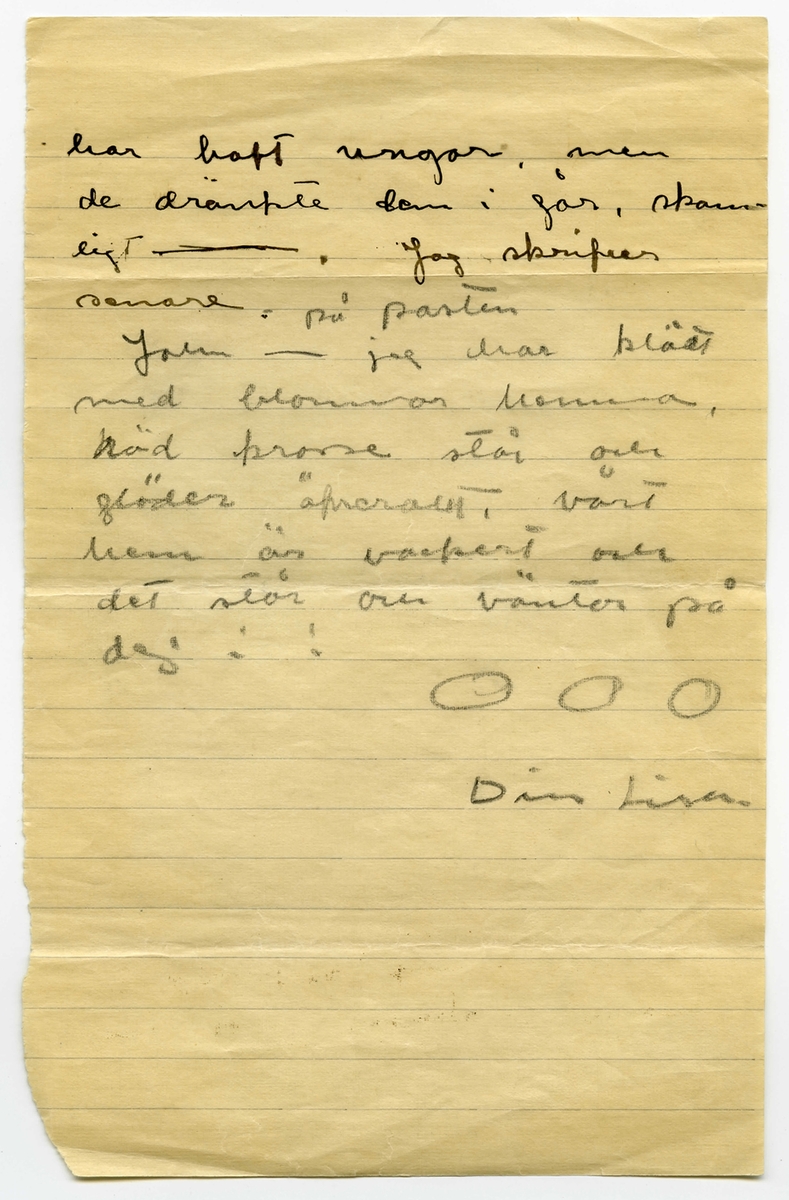 har haft ungar, men
de dränkte dem i går, skam-
ligt —— . Jag skrifver
senare. på posten
John — jag har klädt
med blommor hemma,
Röd krasse står och
glöder öfverallt, vårt
hem är vackert och
det står och väntar på
dej ! !
O O O
Din Lisa.